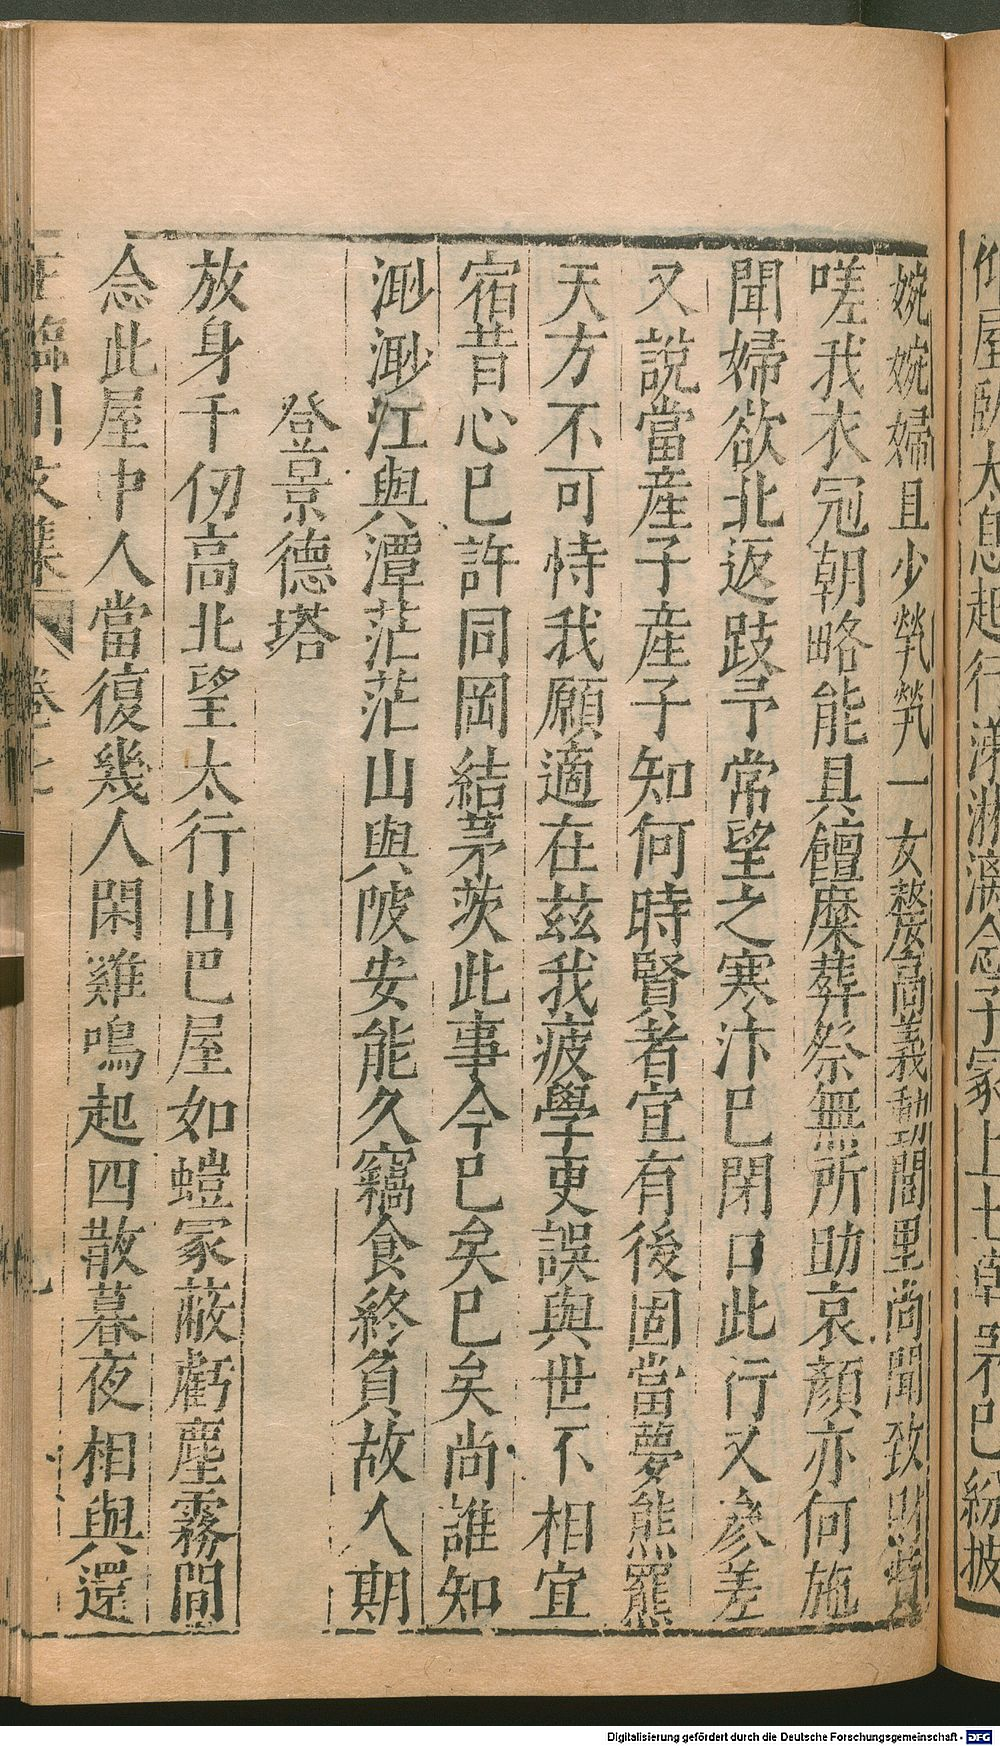 仰屋臥太息起行涕淋漓念子冢上土草已紛披
婉婉婦且少煢煢一女嫠高義動閭里尚聞致財貲
嗟我衣冠朝略能具饘糜葬祭無所助哀顏亦何施
聞婦欲北返跂予常望之寒汴已閉口此行又參差
又說當産子産子知何時賢者宜有後固當夢熊羆
天方不可恃我願適在兹我疲學更誤與世不相宜
宿昔心已許同岡結茅茨此事今已矣已矣尚誰知
渺渺江與潭茫茫山與陂安能久竊食終負故人期
登景德塔
放身千仞高北望太行山邑屋如螘冢蔽虧塵霧間
念此屋中人當復幾人閑雞鳴起四散暮夜相與還
王臨川文集 卷七 九
Digitalisierung gefördert durch die Deutsche Forschungsgemeinschaft - DFG